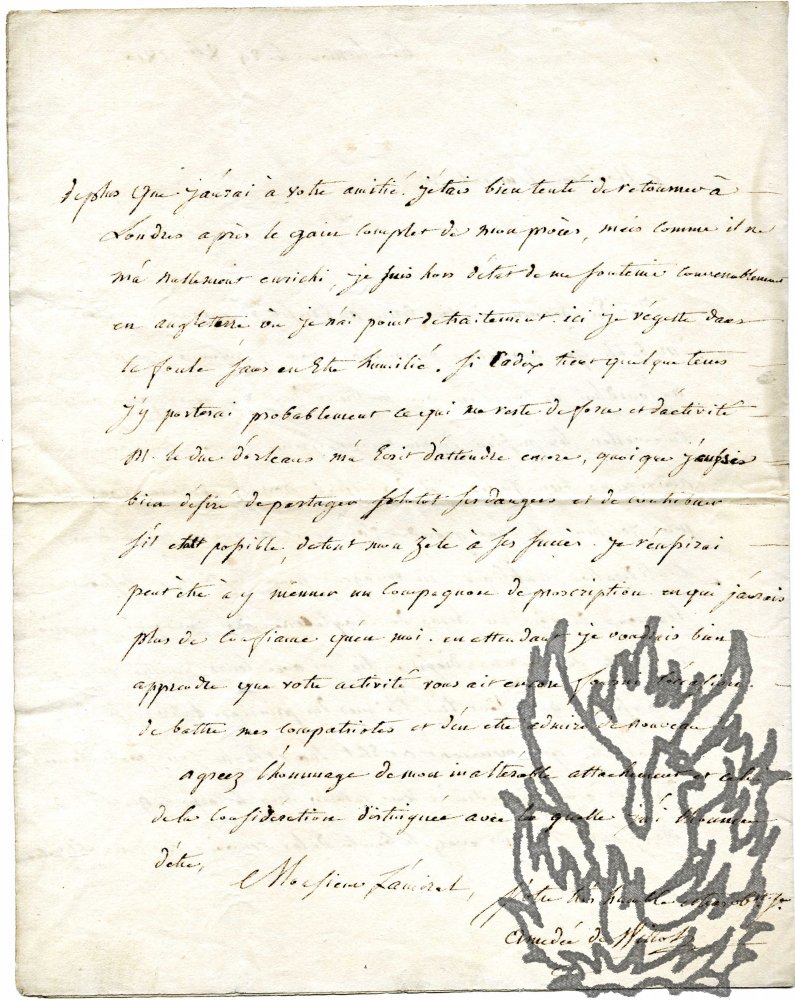 de plus que j'aurai à votre amitié. j'étais bien tenté de retourner à
Londres après le gain complet de mon procès, mais comme il ne
m'a nullement enrichi, je suis hors d'état de me soutenir convenablement
en angleterre où je n'ai point de traitement. ici je végette dans
la foule sans en Etre humilié. si Cadix tient quelque tems
j'y porterai probablement ce qui me reste de force et d'activité
M. le duc d'orleans m'a Ecrit d'attendre encore, quoi que j'eusse
bien désiré de partager ses dangers et de contribuer
s'il etait possible, de tout mon zèle à ses succès. je réussirai
peut être à y menner un compagnon de proscription en qui j'aurais
plus de confiance qu'en moi. en attendant je voudrais bien
apprendre que votre activité vous ait encore fourni
de battre mes compatriotes et d'en etre admiré de nouveau
agréez l'hommage de mon inaltérable attachement et celui
de la considération distinguée avec la quelle j'ai l'honneur
d'être,
Monsieur l'amiral, votre très humble et très obt. sr
amédée de Willot